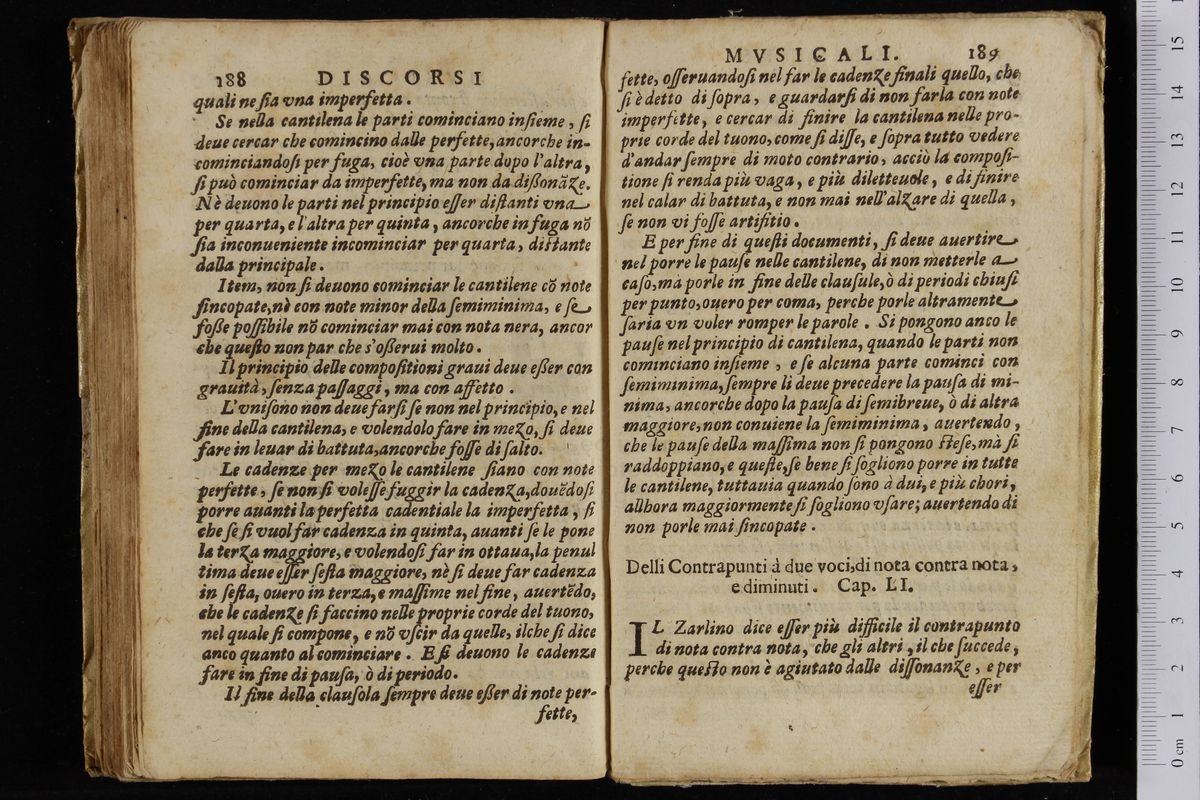 188 DISCORSI
quali ne ſia vna imperfetta.
Se nella cantilena le parti cominciano inſieme, ſi
deue cercar che comincino dalle perfette, ancorche in-
cominciandoſi per fuga, cioè vna parte dopo l'altra,
ſi può cominciar da imperfette, ma non da dißonãze.
Nè deuono le parti nel principio eſſer diſtanti vna
per quarta, e l'altra per quinta, ancorche in fuga nõ
ſia inconueniente incominciar per quarta, diſtante
dalla principale.
Item, non ſi deuono cominciar le cantilene cõ note
ſincopate, nè con note minor della ſemiminima, e ſe
foße poſſibile nõ cominciar mai con nota nera, ancor
che queſto non par che s'oßerui molto.
Il principio delle compoſitioni graui deue eßer con
grauità, ſenza paſſaggi, ma con affetto.
L'vniſono non deue farſi ſe non nel principio, e nel
fine della cantilena, e volendolo fare in mezo, ſi deue
fare in leuar di battuta, ancorche foſſe di ſalto.
Le cadenze per mezo le cantilene ſiano con note
perfette, ſe non ſi voleſſe fuggir la cadenza, douẽdoſi
porre auanti la perfetta cadentiale la imperfetta, ſi
che ſe ſi vuol far cadenza in quinta, auanti ſe le pone
la terza maggiore, e volendoſi far in ottaua, la penul
tima deue eſſer ſeſta maggiore, nè ſi deue far cadenza
in ſeſta, ouero in terza, e maſſime nel fine, auertẽdo,
che le cadenze ſi faccino nelle proprie corde del tuono,
nel quale ſi compone, e nõ vſcir da quelle, ilche ſi dice
anco quanto al cominciare. E ſi deuono le cadenze
fare in fine di pauſa, ò di periodo.
Il fine della clauſola ſempre deue eßer di note per-
fette,
MVSICALI. 189
fette, oſſeruandoſi nel far le cadenze finali quello, che
ſi è detto di ſopra, e guardarſi di non farla con note
imperfette, e cercar di finire la cantilena nelle pro-
prie corde del tuono, come ſi diſſe, e ſopra tutto vedere
d'andar ſempre di moto contrario, acciò la compoſi-
tione ſi renda più vaga, e più diletteuole, e di finire
nel calar di battuta, e non mai nell'alzare di quella,
ſe non vi foſſe artifitio.
E per fine di queſti documenti, ſi deue auertire
nel porre le pauſe nelle cantilene, di non metterle a
caſo, mà porle in fine delle clauſule, ò di periodi chiuſi
per punto, ouero per coma, perche porle altramente
ſaria vn voler romper le parole. Si pongono anco le
pauſe nel principio di cantilena, quando le parti non
cominciano inſieme, e ſe alcuna parte cominci con
ſemiminima, ſempre li deue precedere la pauſa di mi-
nima, ancorche dopo la pauſa di ſemibreue, ò di altra
maggiore, non conuiene la ſemiminima, auertendo,
che le pauſe della maſſima non ſi pongono ſteſe, mà ſi
raddoppiano, e queſte, ſe bene ſi ſogliono porre in tutte
le cantilene, tuttauia quando ſono à dui, e più chori,
allhora maggiormente ſi ſogliono vſare; auertendo di
non porle mai ſincopate.
Delli Contrapunti à due voci, di nota contra nota,
e diminuti. Cap. LI.
IL Zarlino dice eſſer più difficile il contrapunto
di nota contra nota, che gli altri, il che ſuccede,
perche queſto non è agiutato dalle diſſonanze, e per
eſſer
0 cm 1 2 3 4 5 6 7 8 9 10 11 12 13 14 15